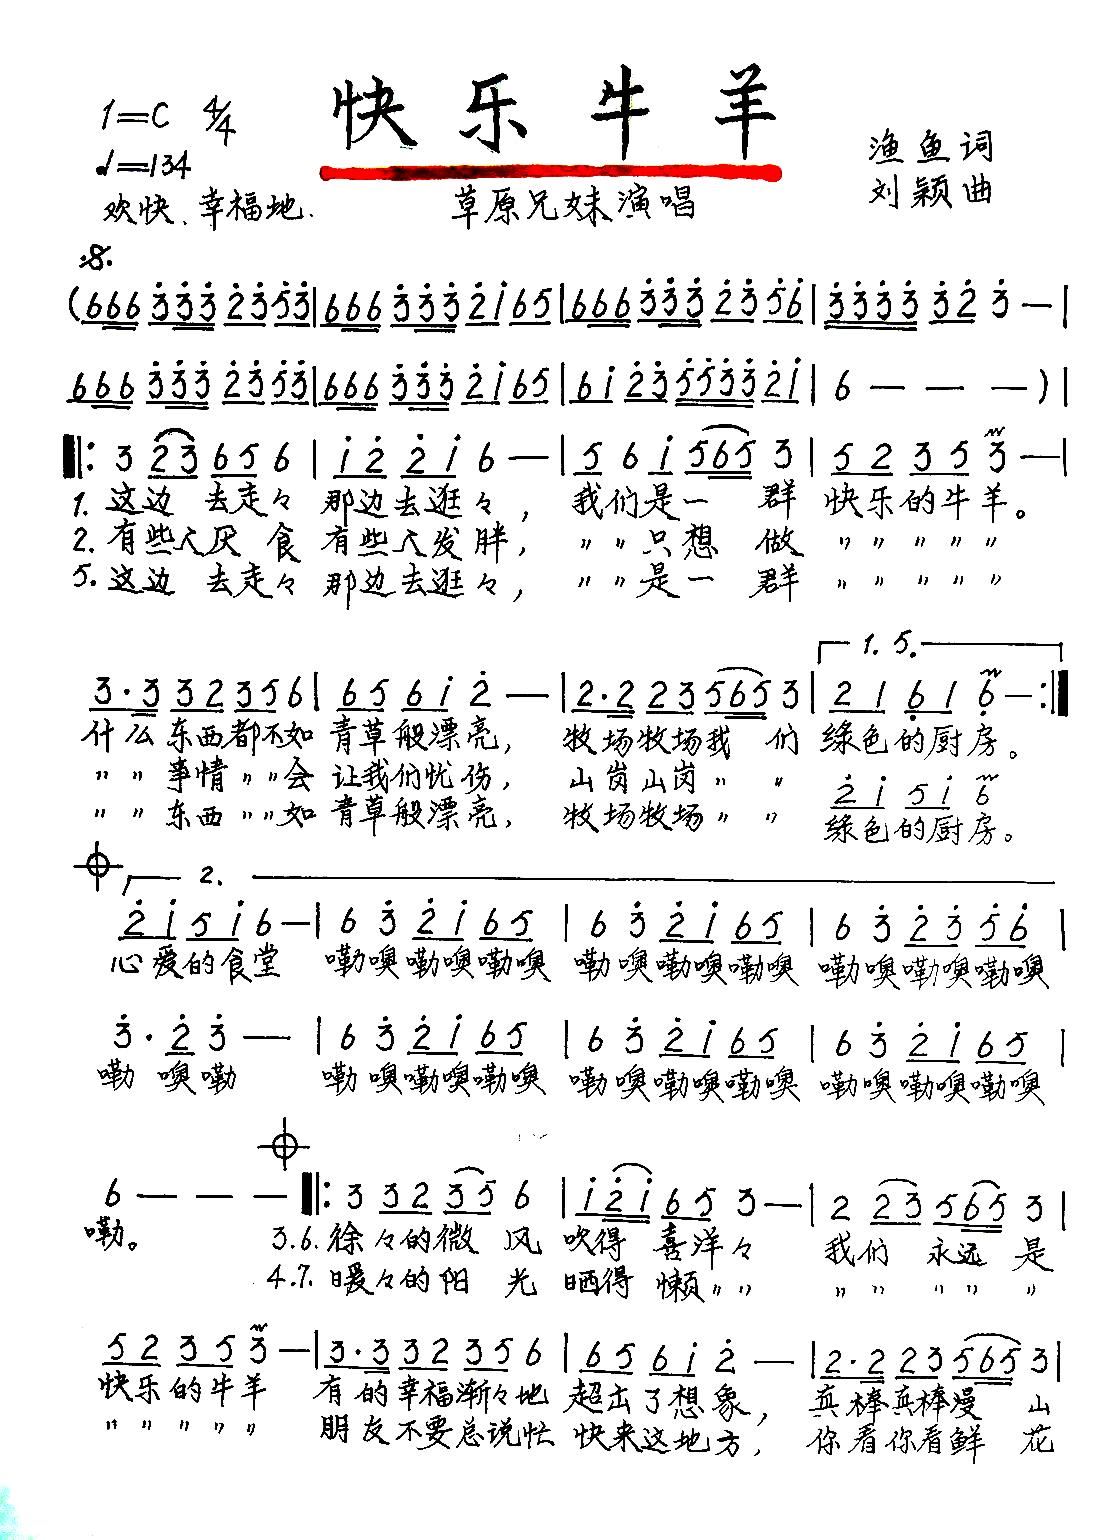 快乐牛羊
1=C 4/4
♩=134
欢快、幸福地.
草原兄妹演唱
渔鱼词
刘颖曲
(666 333 23 53|666 333 21 65|666 333 23 56|3333 32 3 —|
666 333 23 53|666 333 21 65|61 23 5533 21|6 — — —)|
‖: 3 23 65 6|12 21 6 —|5 6 1 565 3|52 35 3 —|
1. 这边 去走々 那边去逛々, 我们是一 群 快乐的牛羊。
2. 有些人厌 食 有些人发胖, 〃〃只想 做 〃〃〃〃〃
5. 这边 去走々 那边去逛々, 〃〃是一 群 〃〃〃〃〃
1. 5.
3·3 32 35 6|65 61 2 —|2·2 23 565 3|21 61 6 — :‖
什么东西都不如 青草般漂亮, 牧场牧场我 们 绿色的厨房。
〃〃事情〃〃会 让我们忧伤, 山岗山岗〃 〃
21 51 6
〃〃东西〃〃如 青草般漂亮, 牧场牧场〃 〃 绿色的厨房。
2.
21 51 6 —|6 3 21 65|6 3 21 65|6 3 23 56|
心爱的食堂 嘞噢嘞噢嘞噢 嘞噢嘞噢嘞噢 嘞噢嘞噢嘞噢
3·2 3 —|6 3 21 65|6 3 21 65|6 3 21 65|
嘞 噢嘞 嘞噢嘞噢嘞噢 嘞噢嘞噢嘞噢 嘞噢嘞噢嘞噢
6 — — — ‖: 3 32 35 6|121 65 3 —|2 23 565 3|
嘞。 3.6. 徐々的微 风 吹得 喜洋々 我们 永远 是
4.7. 暖々的阳 光 晒得 懒〃〃 〃 〃 〃〃 〃
52 35 3 —|3·3 32 35 6|65 61 2 —|2·2 23 565 3|
快乐的牛羊 有的幸福渐々地 超出了想象, 真棒真棒漫 山
〃〃〃〃〃 朋友不要总说忙 快来这地方, 你看你看鲜 花